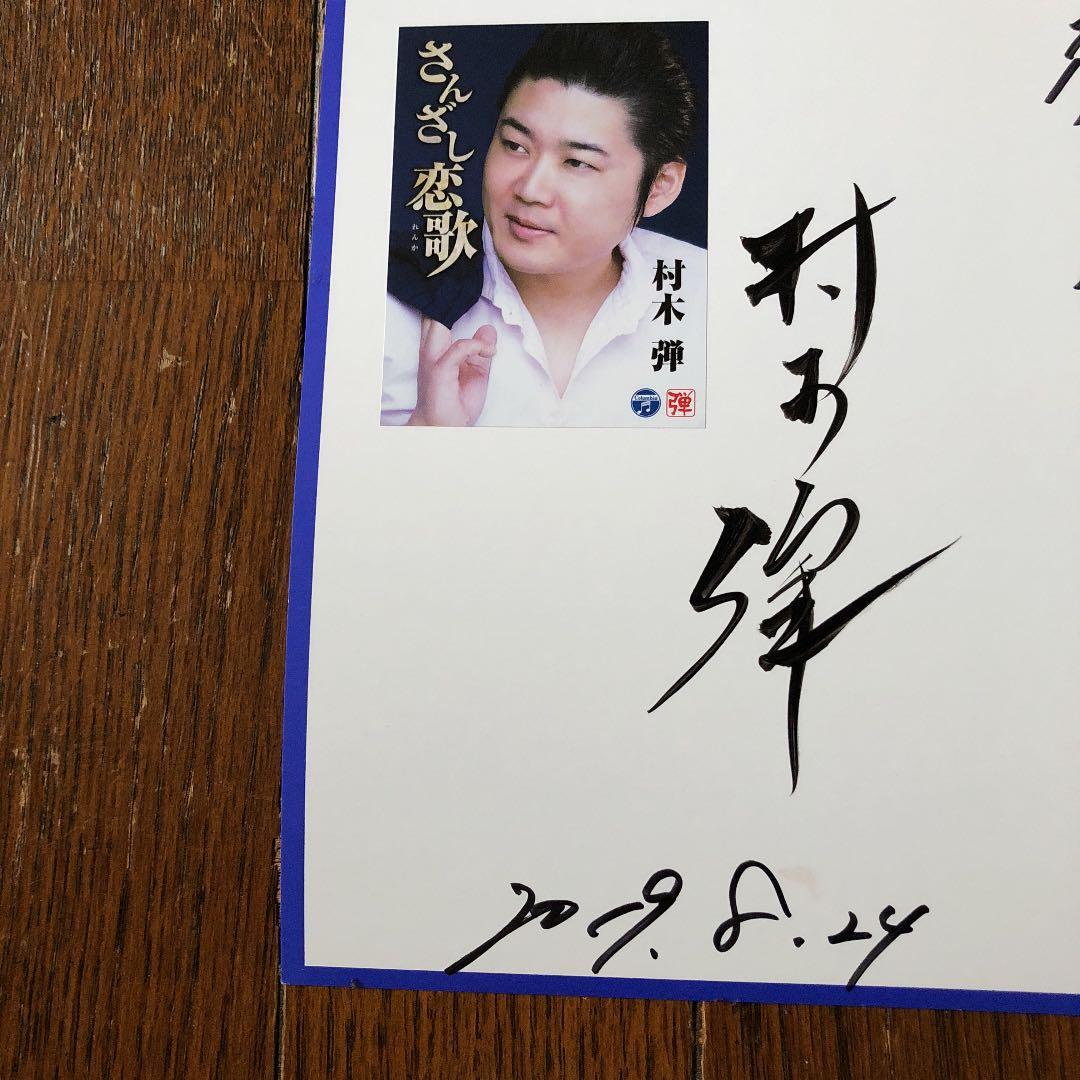 さんざし恋歌
れんか
村木 弾
Columbia
弾
村木弾
2019.8.24